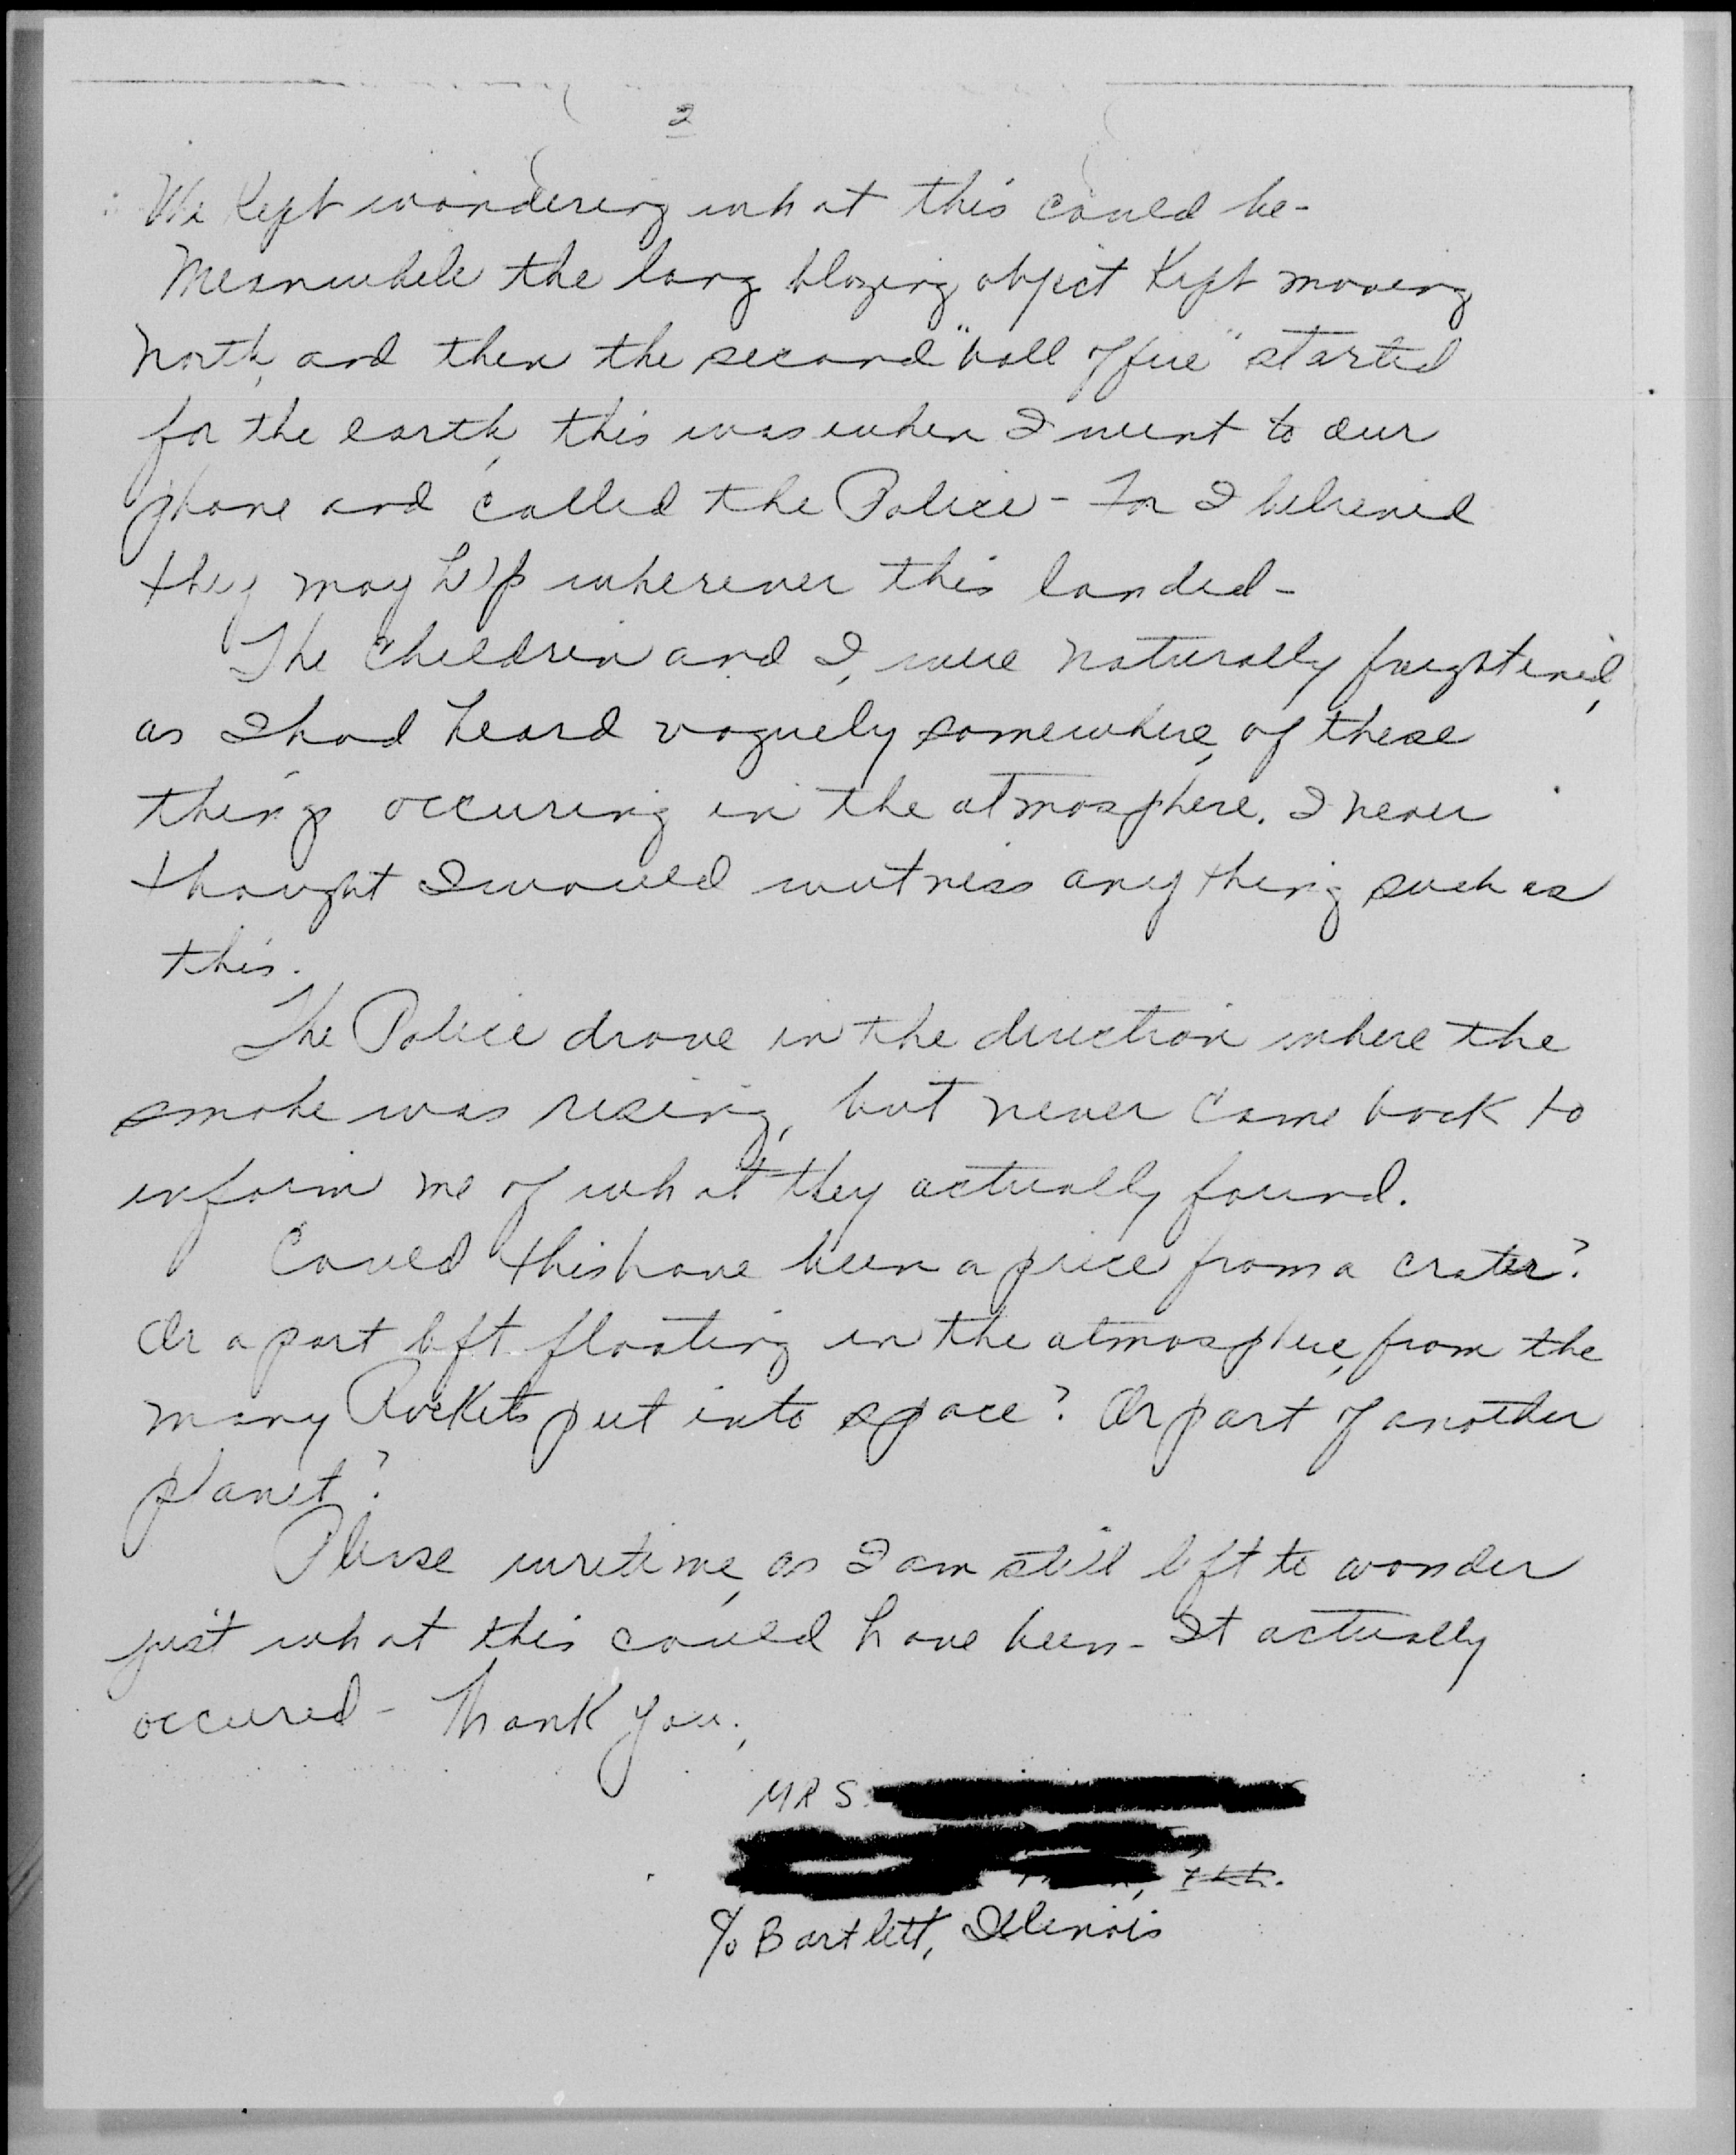 2
We Kept wondering what this could be-
Meanwhile the long blazing object Kept moving
North, and then the second "ball of fire" started
for the earth, this was when I went to our
phone and called the Police - For I believed
they may help wherever this landed -
The children and I, were naturally frightened,
as I had heard vaguely somewhere, of these
things occuring in the atmosphere. I never
thought I would witness any thing such as
this.
The Police drove in the direction where the
smoke was rising, but never came back to
inform me of what they actually found.
Could this have been a piece from a crater?
Or a part left floating in the atmosphere, from the
many Rockets put into space? Or part of another
planet?
Please write me, as I am still left to wonder
just what this could have been - It actually
occured - Thank you,
MRS.
Ill.
c/o Bartlett, Illinois